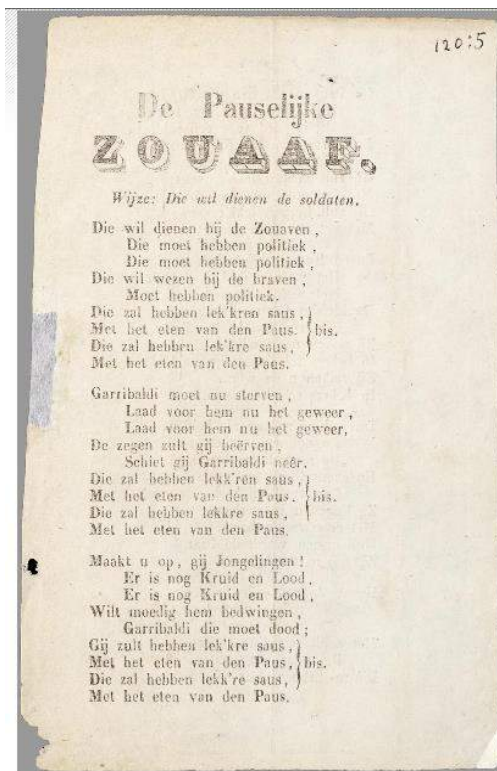 120:5
De Pauselijke
ZOUAAF.
Wijze: Die wil dienen de soldaten.
Die wil dienen bij de Zouaven,
Die moet hebben politiek,
Die moet hebben politiek,
Die wil wezen bij de braven,
Moet hebben politiek.
Die zal hebben lek'kren saus,
Met het eten van den Paus. bis.
Die zal hebben lek'kre saus,
Met het eten van den Paus.
Garribaldi moet nu sterven,
Laad voor hem nu het geweer,
Laad voor hem nu het geweer,
De zegen zult gij beërven,
Schiet gij Garribaldi neêr.
Die zal hebben lekk'ren saus,
Met het eten van den Paus. bis.
Die zal hebben lekkre saus,
Met het eten van den Paus.
Maakt u op, gij Jongelingen!
Er is nog Kruid en Lood,
Er is nog Kruid en Lood,
Wilt moedig hem bedwingen,
Garribaldi die moet dood;
Gij zult hebben lek'kre saus,
Met het eten van den Paus, bis.
Die zal hebben lekk're saus,
Met het eten van den Paus.